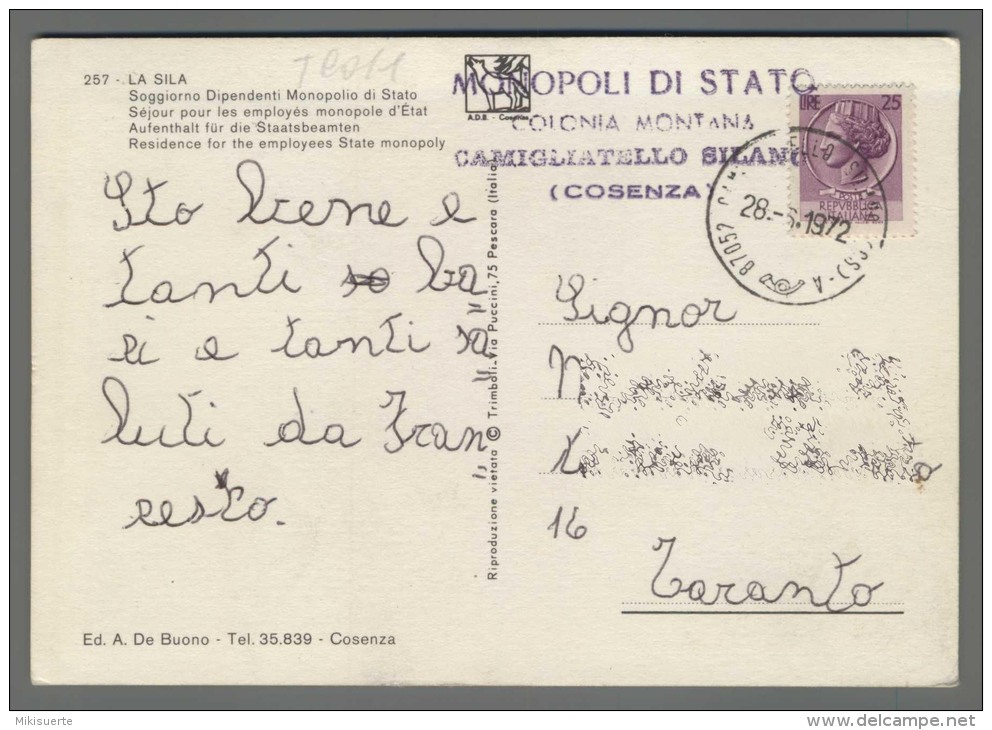 257 - LA SILA
Soggiorno Dipendenti Monopolio di Stato
Séjour pour les employés monopole d'État
Aufenthalt für die Staatsbeamten
Residence for the employees State monopoly
A.D.B. - Cosenza
MONOPOLI DI STATO
COLONIA MONTANA
CAMIGLIATELLO SILANO
(COSENZA)
LIRE 25
POSTE
REPVBBLICA
ITALIANA
87057
28.-6.1972
(CS)-A
Sto bene e
tanti ba
ci e tanti sa
luti da Fran
cesco.
Signor
16
Taranto
Riproduzione vietata © Trimboli-Via Puccini,75 Pescara (Italia)
Ed. A. De Buono - Tel. 35.839 - Cosenza
Mikisuerte
delcampe.net